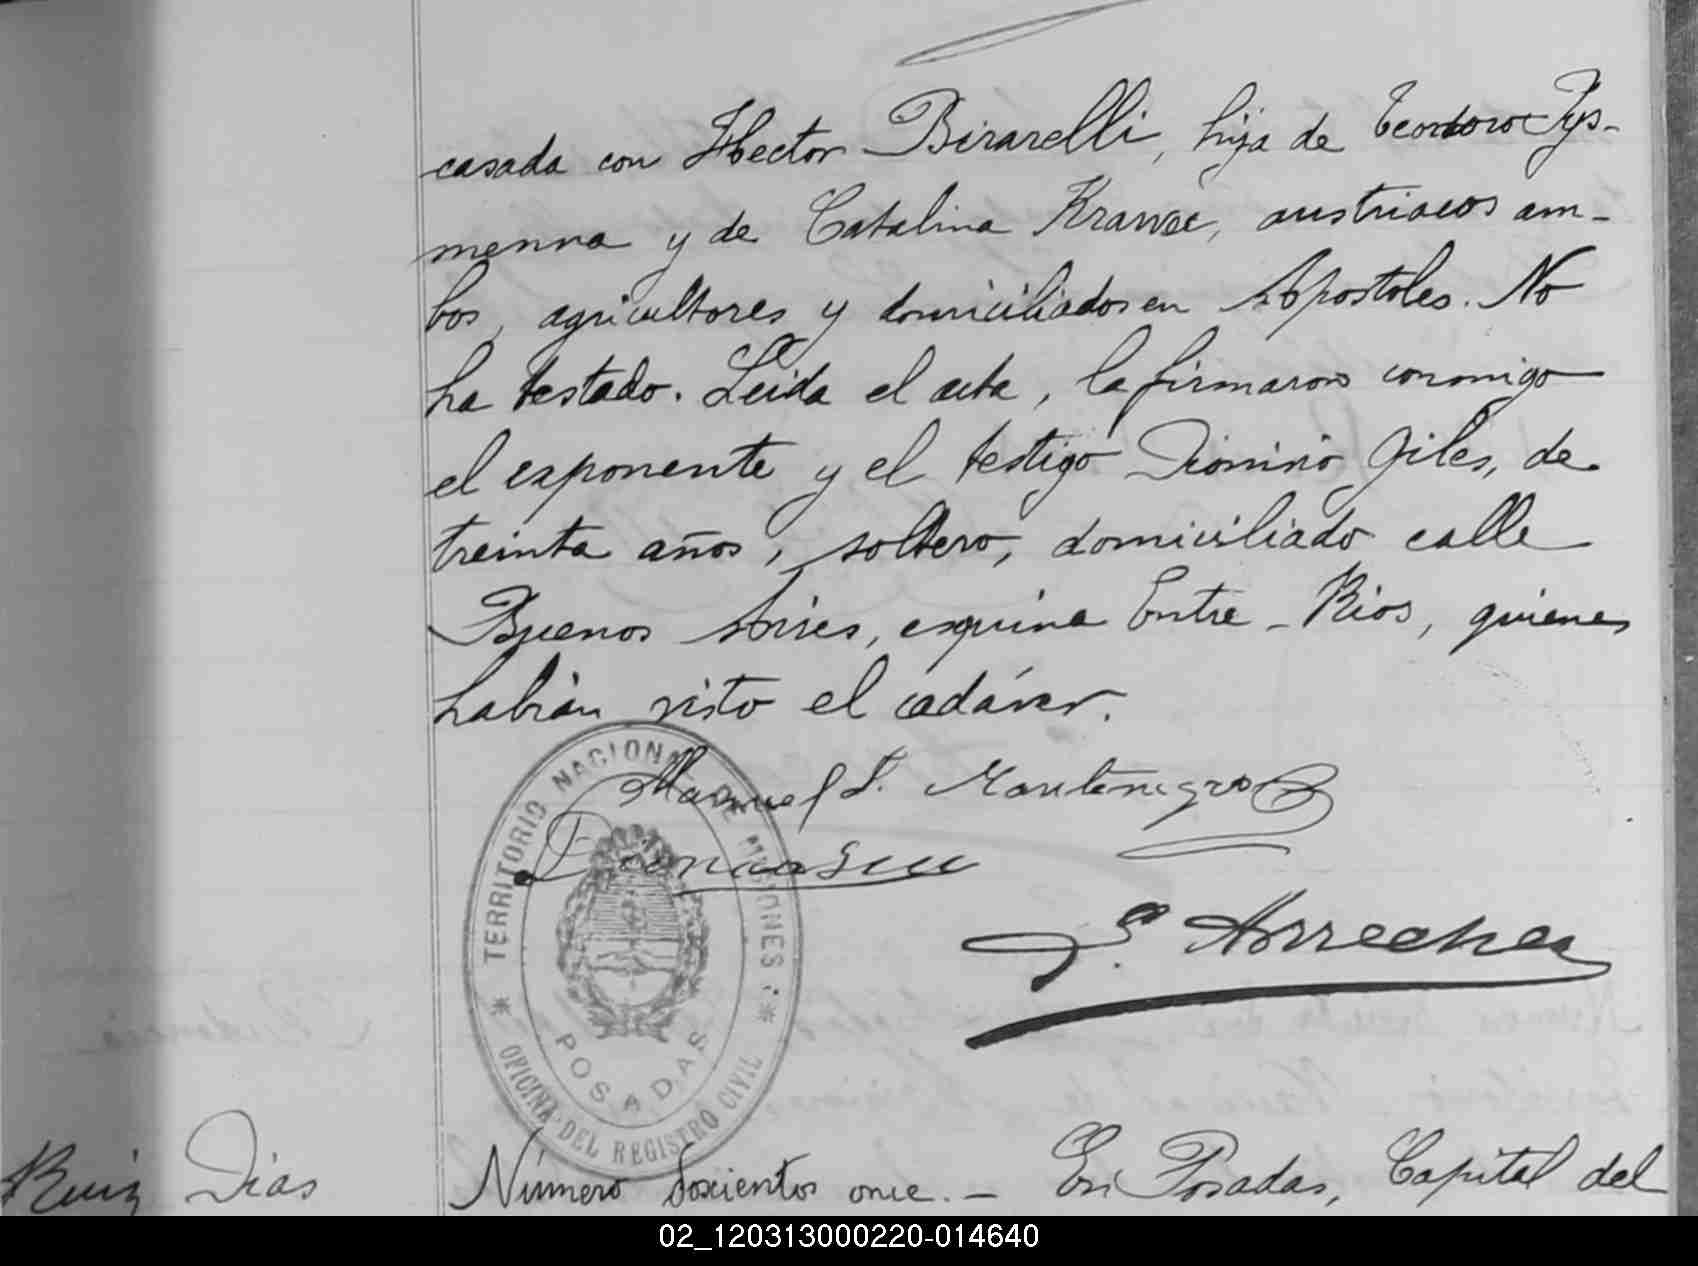 casada con Hector Birarelli, hija de Teodoro Tys-
menna y de Catalina Krawec, austriacos am-
bos, agricultores y domiciliados en Apostoles. No
ha testado. Leida el acta, la firmaron conmigo
el exponente y el testigo Dionisio Giles, de
treinta años, soltero, domiciliado calle
Buenos Aires, esquina Entre-Rios, quienes
habian visto el cadáver.
Manuel S. Montenegro
Arrechea
TERRITORIO NACIONAL DE MISIONES
POSADAS
OFICINA DEL REGISTRO CIVIL
Ruiz Dias
Número Doscientos once. - En Posadas, Capital del
02_120313000220-014640